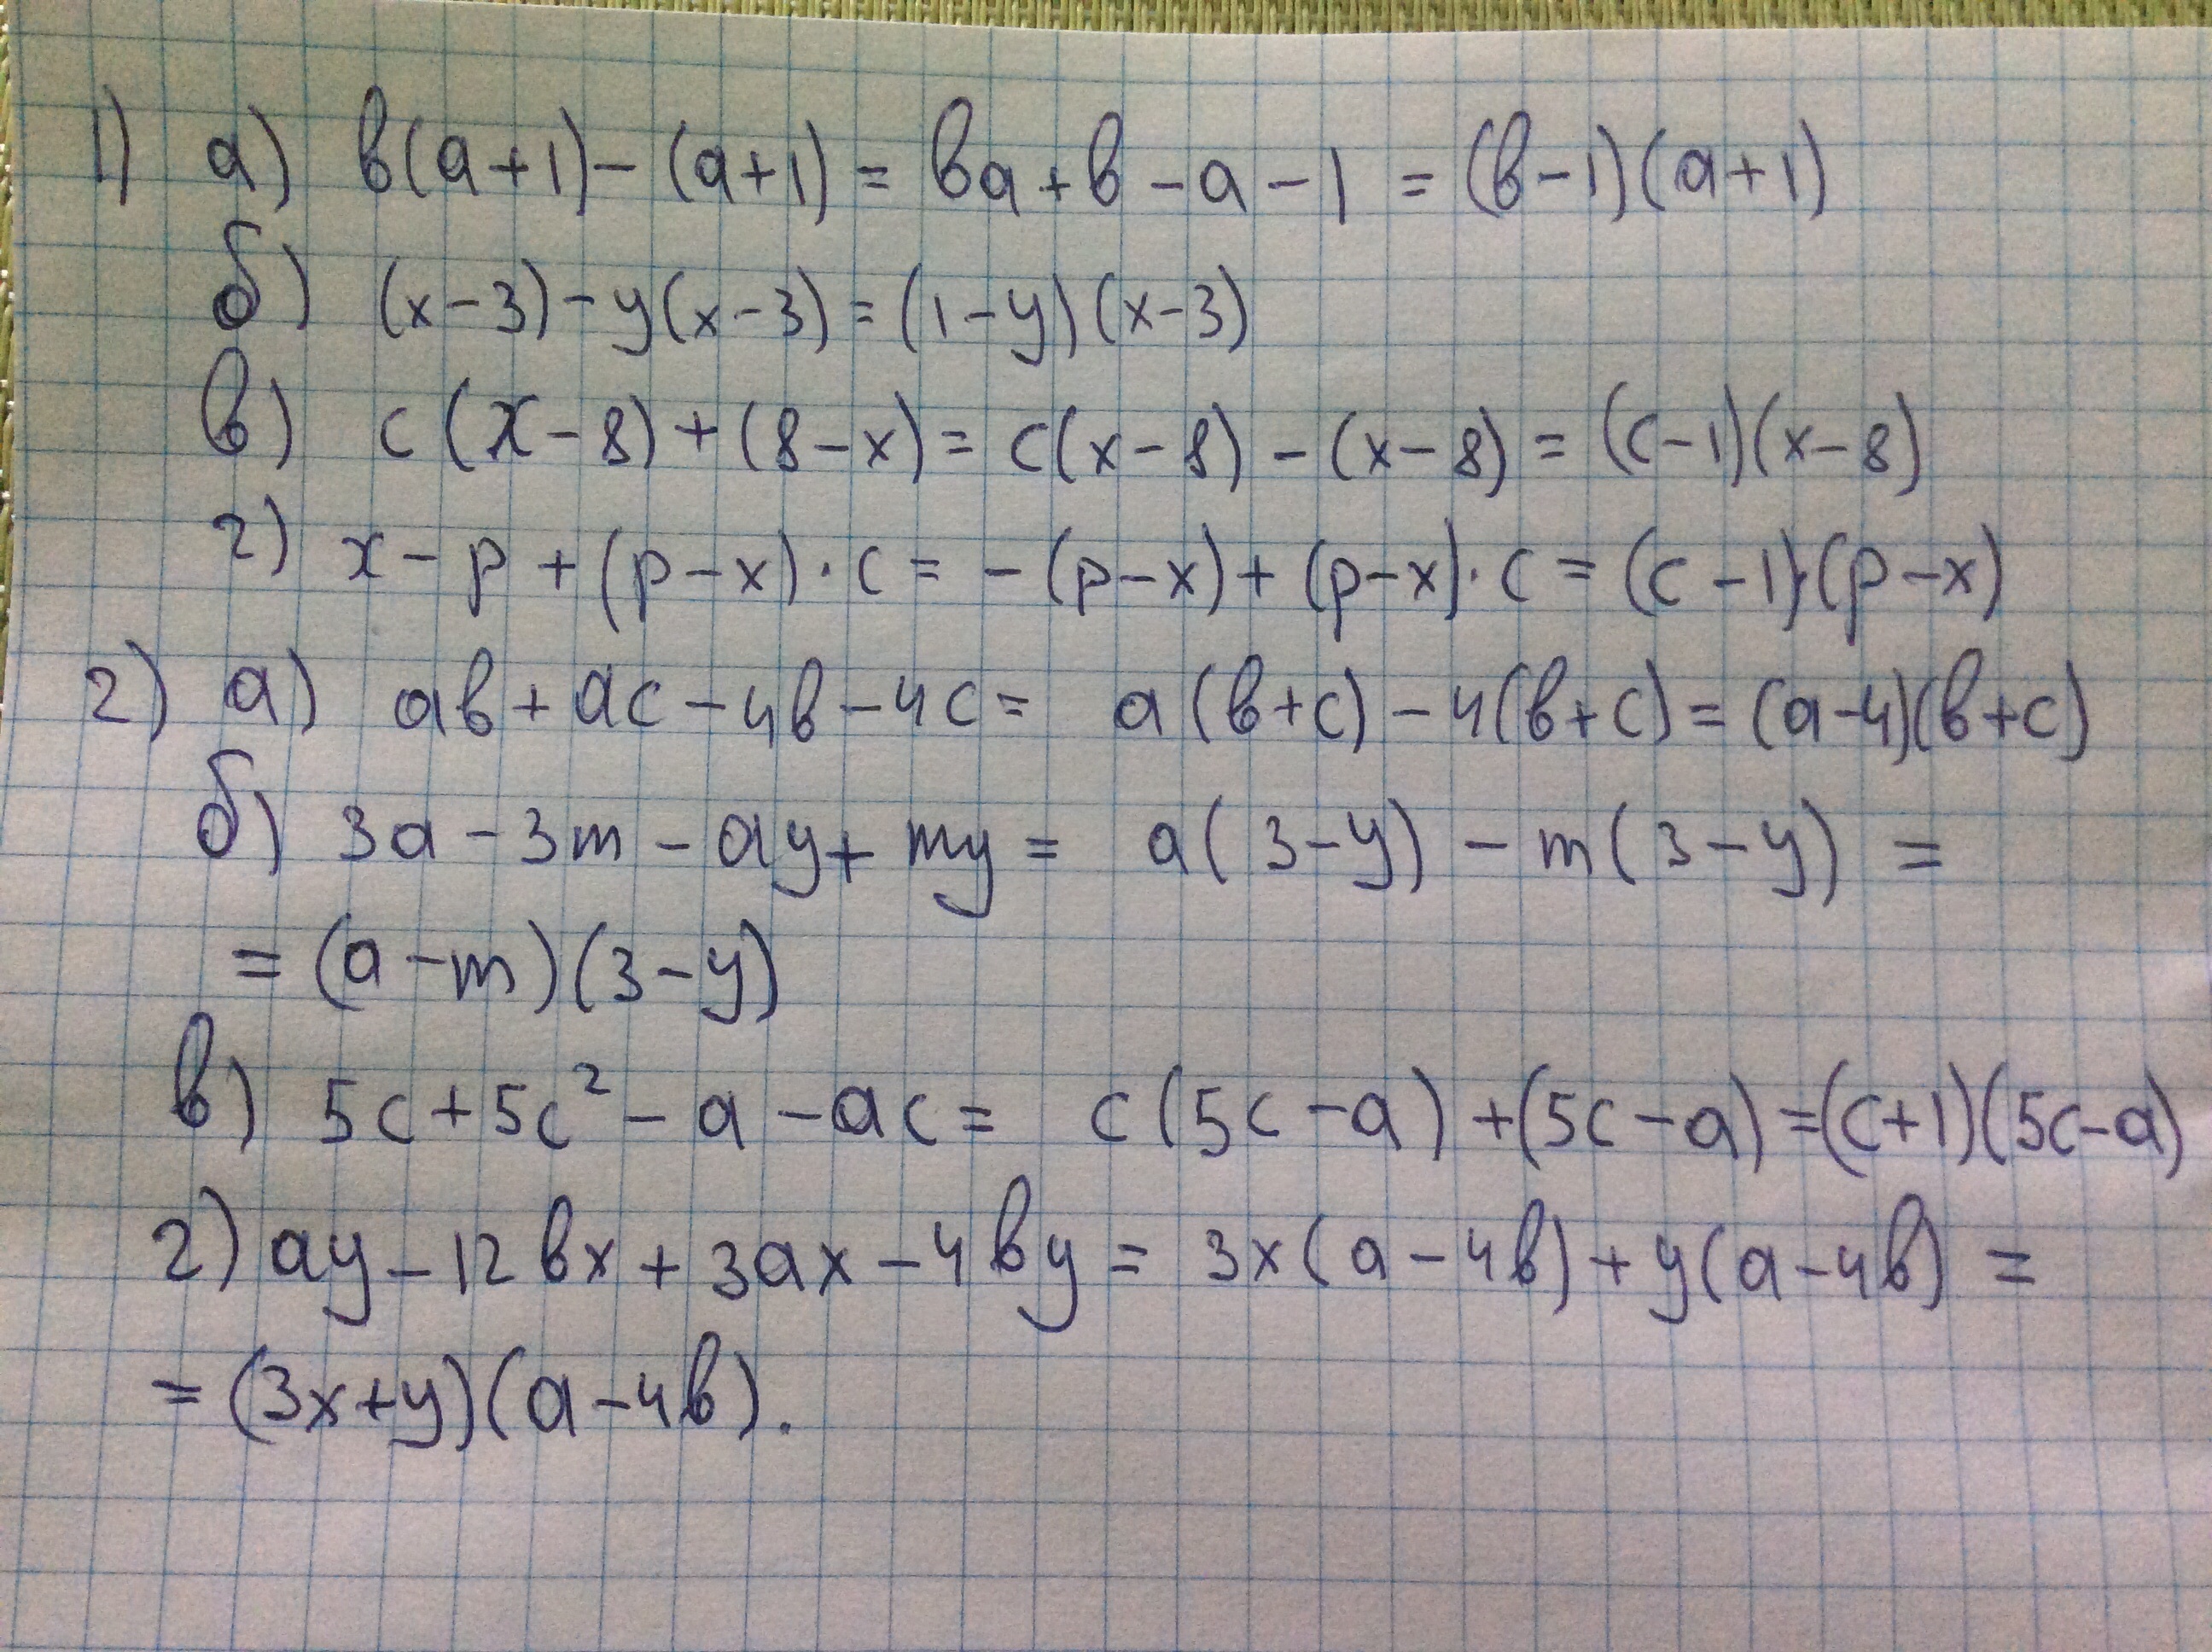 1) а) в(а+1)-(а+1) = ва+в-а-1 = (в-1)(а+1)
б) (x-3)-y(x-3) = (1-y)(x-3)
в) c(x-8)+(8-x) = c(x-8)-(x-8) = (c-1)(x-8)
г) x-p+(p-x)·c = -(p-x)+(p-x)·c = (c-1)·(p-x)
2) а) ав+ac-4в-4c = a(в+c)-4(в+c) = (a-4)(в+c)
б) 3a-3m-ay+my = a(3-y)-m(3-y) =
= (a-m)(3-y)
в) 5c+5c²-a-ac = c(5c-a)+(5c-a) = (c+1)(5c-a)
г) ay-12вx+3ax-4вy = 3x(a-4в)+y(a-4в) =
= (3x+y)(a-4в).